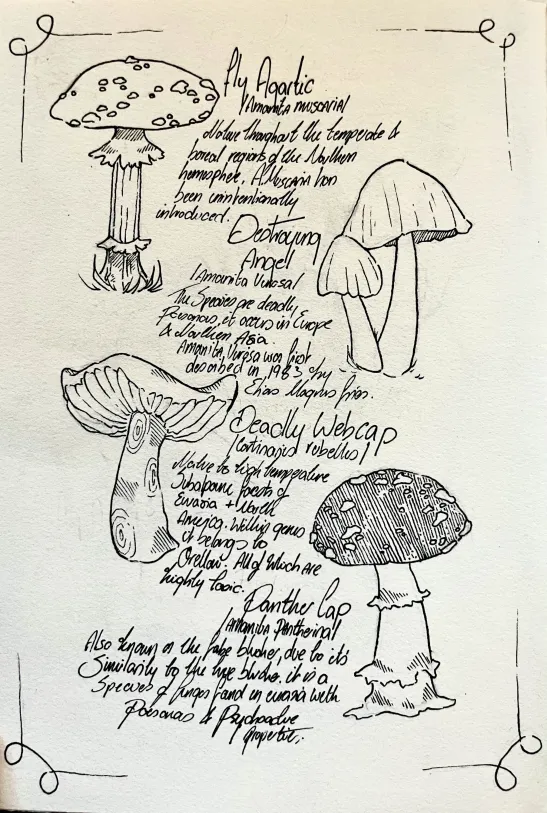 Fly Agartic
|Amanita muscaria|
Native throughout the temperate &
boreal regions of the Northern
hemisphere, A.Muscaria has
been unintentionally
introduced.
Destroying
Angel
|Amanita Virosa|
The Species are deadly
Poisonous, it occurs in Europe
& Northern Asia.
Amanita Virosa was first
described in 1983 by
Elias Magnus fries.
Deadly Webcap
|Cortinarius rubellus|
Native to high temperature
Subalpine forests of
Eurasia + North
America. Within genus
it belongs to
Orellani. All of Which are
highly toxic.
Panther Cap
|Amanita Pantherina|
Also known as the false blusher, due to it's
Similarity to the true blusher, it is a
Species of fungi found in eurasia with
Poisonous & Psychoactive
properties.